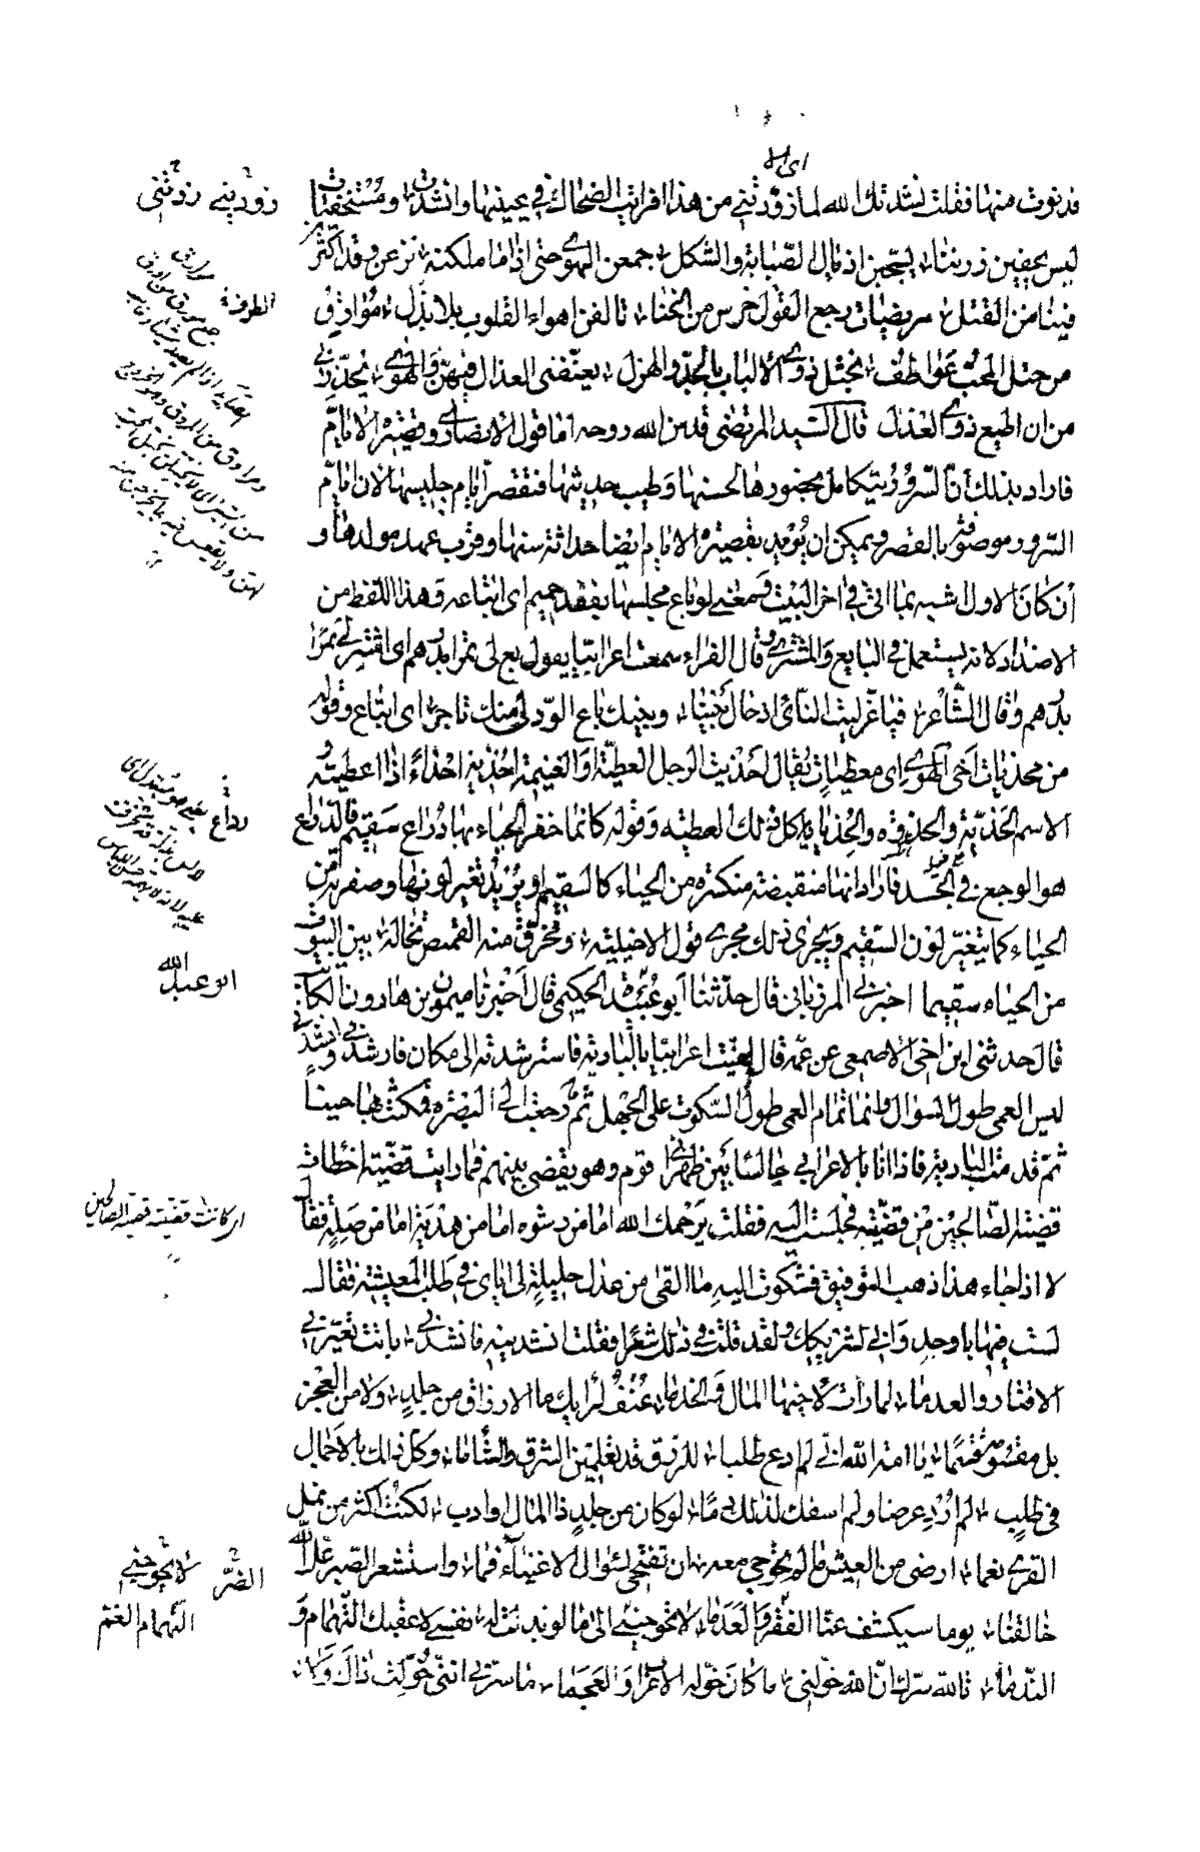 ای الا
فدنوت منها فقلت نشدتك الله لما زودتني من هذا فرأيت الضحاك في عينيها وانشدت ومستخفيات
ليس يخفين زرننا يسحبن اذيال الصبابة والشكل جمعن الهوى حتى اذا ما ملكنه نزعن وقد اكثرن
فينا من القتل مريضات رجع القول خرس من الخنا تألفن اهواء القلوب بلا بذل موارق
من حبل المحب عواطف بختل ذوي الالباب بالجد والهزل يعنفني العذال فيهن والهوى يحذرني
من ان اطيع ذوي العذل قال السيد المرتضى قدس الله روحه اما قول الانصاري وقصيرة الايام
فاراد بذلك ان السرور يتكامل بحضورها لحسنها وطيب حديثها فتقصر ايام جليسها لان ايام
السرور موصوفة بالقصر ويمكن ان يريد بقصيرة الايام ايضا حداثة سنها وقرب عهد مولدها و
ان كان الاول اشبه بما اتى في اخر البيت ومعنى لو باع مجلسها بفقد حميم اى ابتاعه وهذا اللفظ من
الاضداد لانه يستعمل في البايع والمشتري قال الفراء سمعت اعرابيا يقول بع لي تمرا بدرهم اى اشتر لي تمرا
بدرهم وقال الشاعر فيا عز ليت الناي اذ حال بيننا وبينك باع الود لي منك تاجر اى ابتاع وقوله
من محذيات اخى الهوى اى معطيات يقال احذيت الرجل العطية او الغنيمة احذيه احذاء اذا اعطيته
الاسم الحذية والحذوة والحذيا كل ذلك العطيه وقوله كانما خفر الحياء بها رداع سقيم فالرداع
هو الوجع في الجسد فاراد انها منقبضة منكسرة من الحياء كالسقيم او يريد تغير لونها وصفرته من
الحياء كما يتغير لون السقيم ويجرى ذلك مجرى قول الاخيلية ومخرق عنه القميص تخاله بين البيوت
من الحياء سقيما اخبرني المرزباني قال حدثنا ابو عبد الله الحكيمي قال اخبرنا ميمون بن هارون الكاتب
قال حدثني ابن اخي الاصمعي عن عمه قال لقيت اعرابيا بالبادية فاسترشدته الى مكان فارشدني وانشدني
ليس العمى طول السؤال وانما تمام العمى طول السكوت على الجهل ثم رجعت الى البصرة فمكثت بها حينا
ثم قدمت البادية فاذا انا بالاعرابي جالسا بين ظهراني قوم وهو يقضي بينهم فما رايت قضية اخطات
قضية الصالحين من قضيته فجلست اليه فقلت يرحمك الله اما من رشوة اما من هدية اما من صلة فقال
لا اذا جاء هذا ذهب التوفيق فشكوت اليه ما القى من عذل حليلة لي اياى في طلب المعيشة فقال
لست فيها باوحد واني لشريكك ولقد قلت في ذلك شعرا فقلت انشدنيه فانشدني باتت تعيرني
الاقتار والعدما لما رات لاخيها المال والخدما عنف لرأيك ما الارزاق من جلد ولا من العجز
بل مقسومة قسما يا امة الله اني لم ادع طلبا للرزق قد تعلمين الشرق والشاما وكل ذلك بالاجمال
في طلب لم ارد عرضا ولم اسفك لذلك دما لو كان من جلد ذا المال او ادب لكنت اكثر من نمل
القرى نعما ارضى من العيش ما لم تحوجي معه ان تفتحي لسؤال الاغنياء فما واستشعر الصبر عل الله
خالقنا يوما سيكشف عنا الفقر والعدما لا تحوجيني الى ما لو بذلت له نفسي لاعقبك التهمام و
الندما تالله سرك ان الله خولني ما كان خوله الاعراب والعجما ما سرني انني خولت ذاك ولا
زودنيي زودتني
الطرف
رداع
ابو عبد الله
اى كانت قضيته قضية الصالحين
الضر لا تحوجيني
التهمام الغم